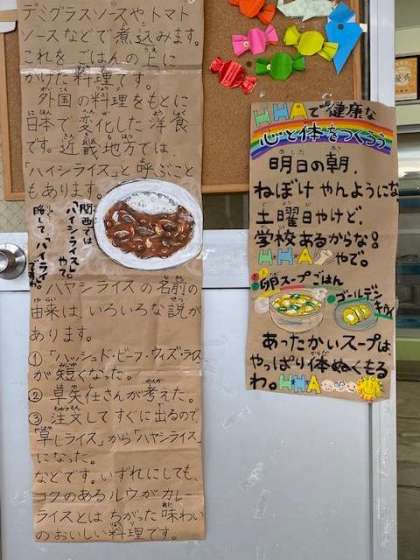 デミグラスソースやトマト
ソースなどで煮込みます。
これをごはんの上に
かけた料理です。
外国の料理をもとに
日本で変化した洋食
です。近畿地方では、
「ハイシライス」と呼ぶこと
もあります。
関西では
「ハイシライス」
やで。
略して「ハイライ」
ハヤシライスの名前の
由来は、いろいろな説が
あります。
①「ハッシュド・ビーフ・ウィズ・ライス」
が短くなった。
② 早矢仕さんが考えた。
③ 注文してすぐに出るので、
「早しライス」から「ハヤシライス」
になった。
などです。いずれにしても、
コクのあるルウがカレー
ライスとはちがった味わい
のおいしい料理です。
HHAで健康な
心と体をつくろう
明日の朝、
ねぼけやんように
土曜日やけど、
学校あるからな!
HHAやで。
卵スープごはん
ゴールデンキウイ
あったかいスープは、
やっぱり体ぬくもる
わ。HHA